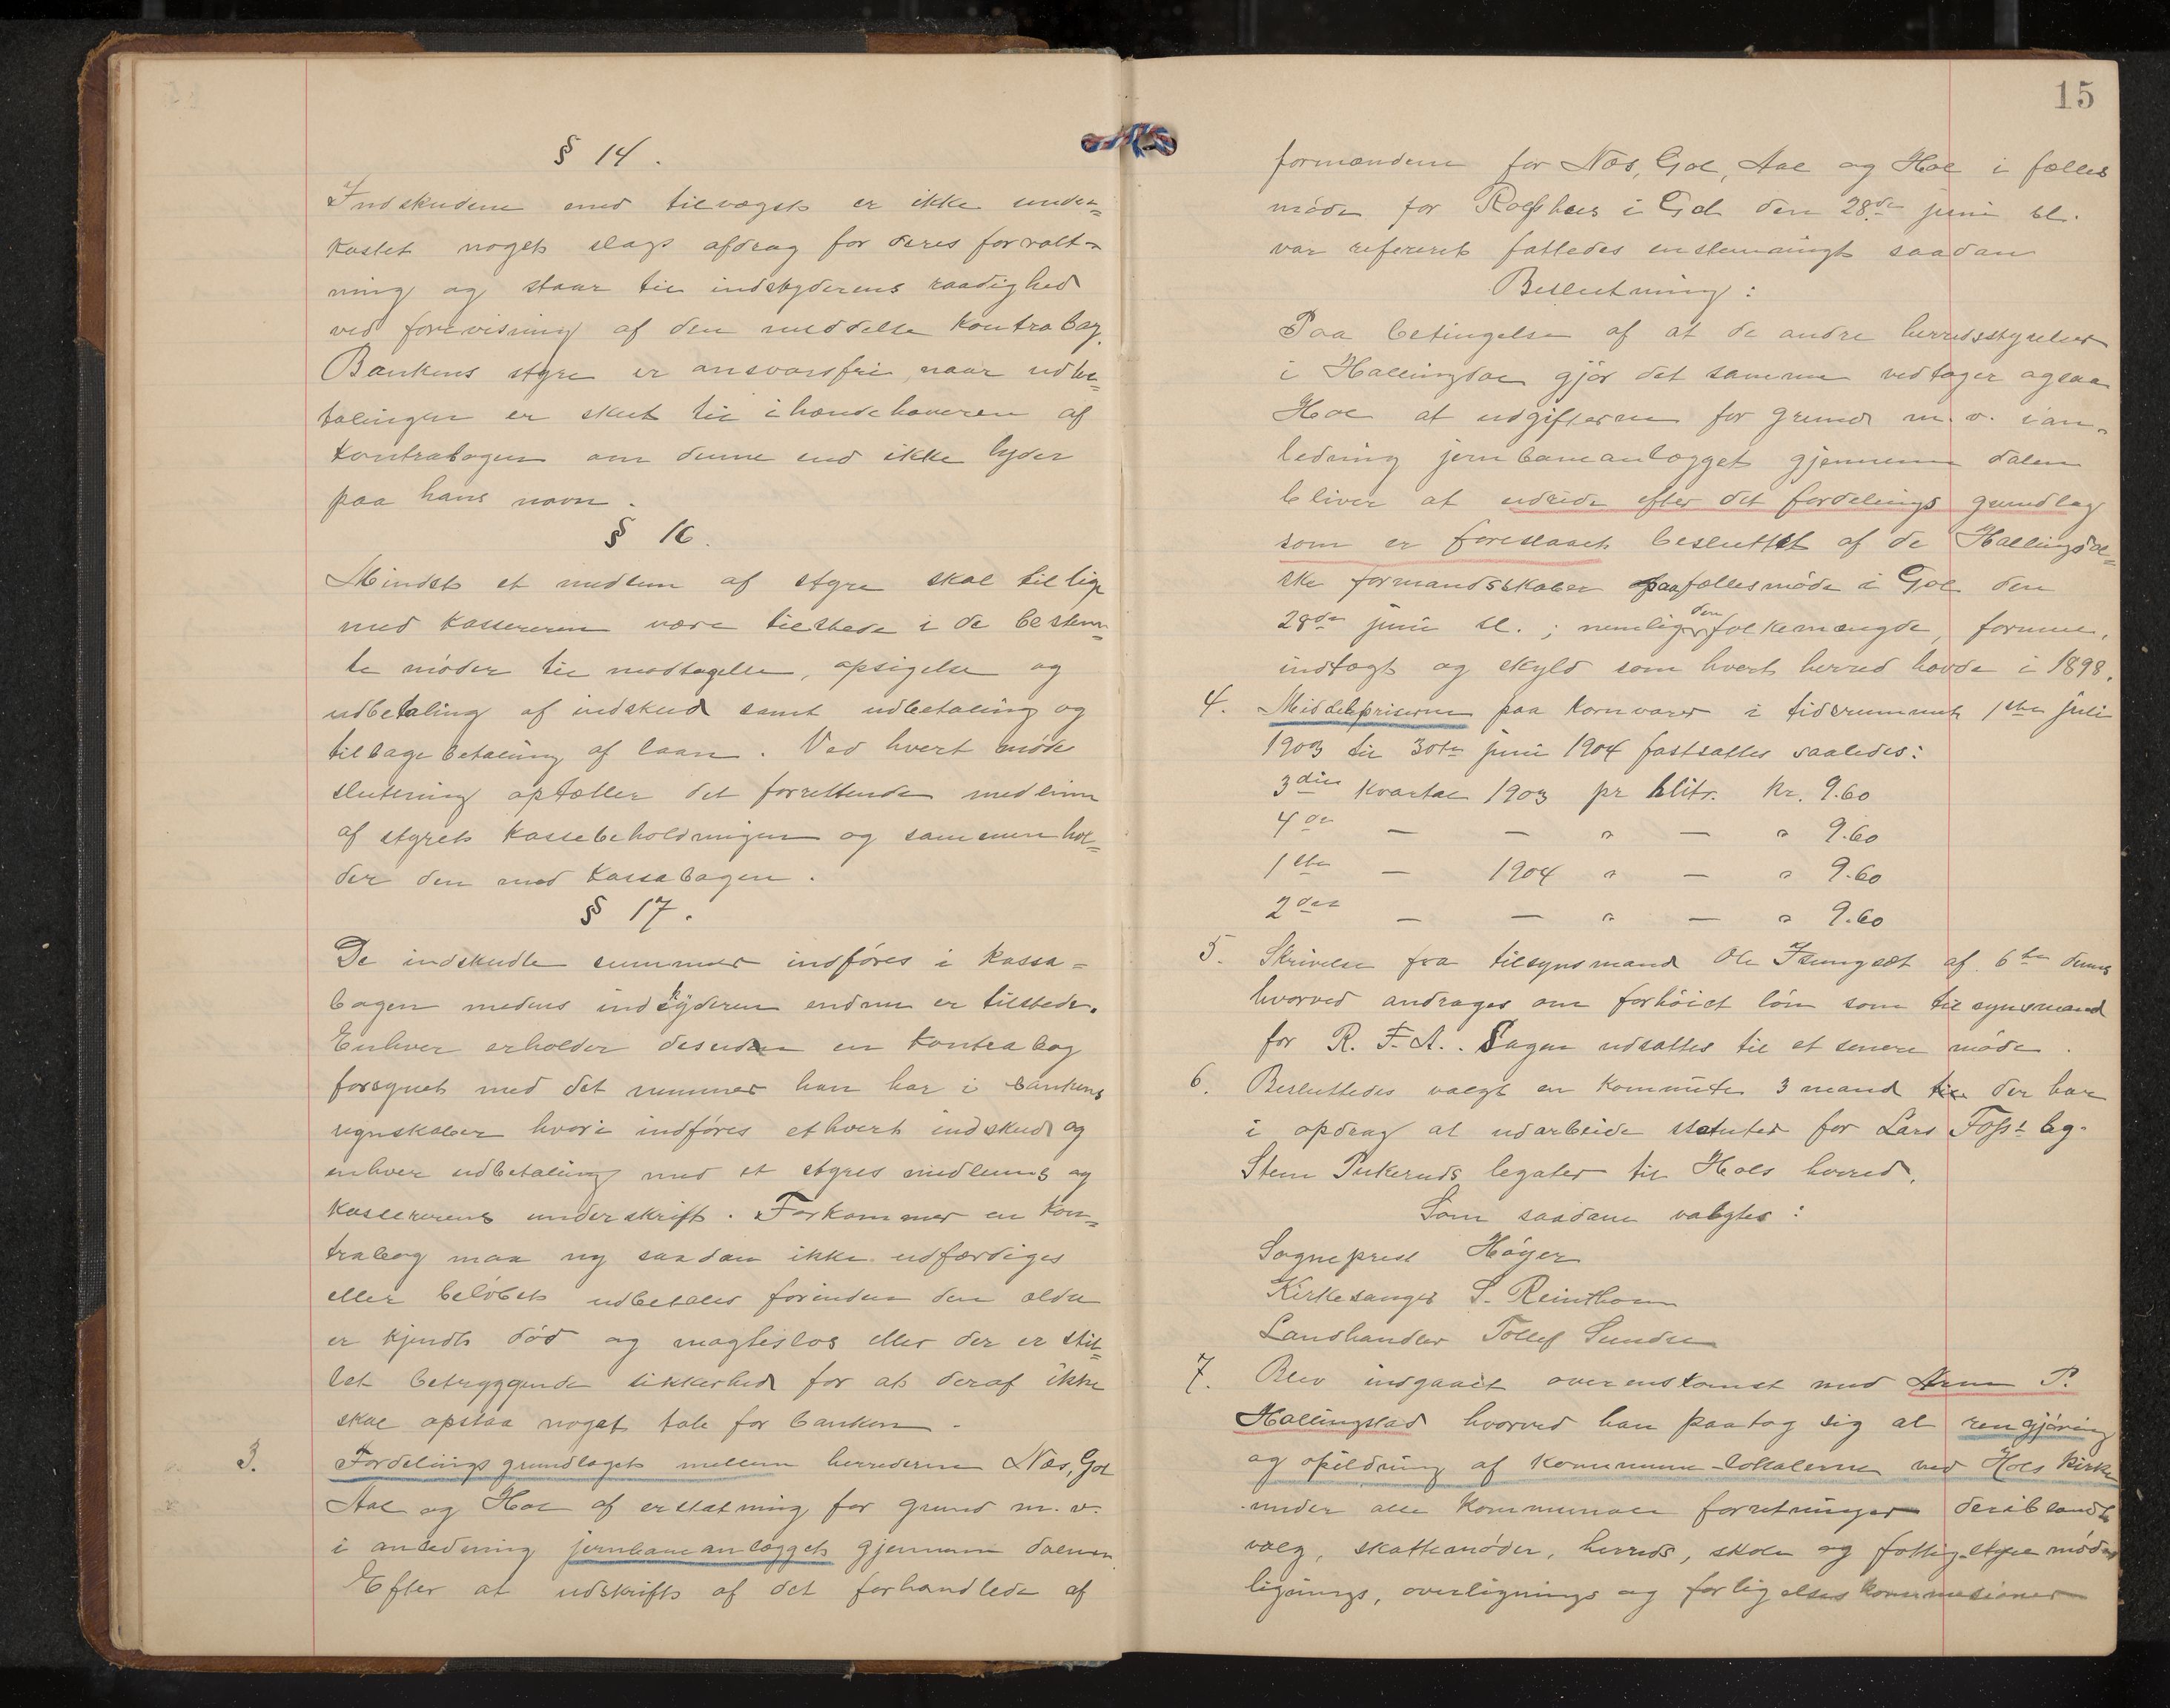 § 14.
Indskudene med tilvægst er ikke under=
kastet nogets slags afdrag for deres forvalt=
ning og staar til indskyderens raadighed
ved forevisning af den meddelte kontrabog.
Bankens styre er ansvarsfri, naar udbe=
talingen er skeet til ihændehaveren af
kontrabogen om denne end ikke lyder
paa hans navn.
§ 16.
Mindst et medlem af styre skal tillige
med kassereren være tilstede i de bestem=
te møder til modtagelse, opsigelse og
udbetaling af indskud samt udbetaling og
tilbagebetaling af laan. Ved hvert møde
slutning optæller det forrettende medlem
af styrets kassebeholdningen og sammenhol=
der den med kassabogen.
§ 17.
De indskudte summer indføres i kassa=
bogen medens indskyderen endnu er tilstede.
Enhver erholder desuden en kontrabog
forsynet med det nummer han har i bankens
regnskaber hvori indføres ethvert indskud og
enhver udbetaling med et styres medlems og
kassererens underskrift. Forkommer en kon=
trabog maa ny saadan ikke udfærdiges
eller beløbet udbetales forinden den ældre
er kjendt død og magtesløs eller der er stil=
let betryggende sikkerhed for at deraf ikke
skal opstaa noget tab for banken.
3. Fordelingsgrundlaget mellem herrederne Næs, Gol
Aal og Hol af erstatning for grund m. v.
i anledning jernbaneanlægget gjennem dalen.
Efter at udskrift af det forhandlede af
15
formændene for Næs, Gol, Aal og Hol i fælles
møde for Rolfshus i Gol den 28de juni sl.
var refereret fattedes enstemmigt saadan
Beslutning:
Paa betingelse af at de andre herredsstyrelser
i Hallingdal gjør det samme vedtager ogsaa
Hol at udgifterne for grund m. v. i an=
ledning jernbaneanlægget gjennem dalen
bliver at udrede efter det fordelings grundlag
som er foreslaaet besluttet af de Hallingdal=
ske formandsskaber paa fællesmøde i Gol den
28de juni sl.; nemlig den folkemængde, formue,
indtægt og skyld som hvert herred havde i 1898.
4. Middelpriserne paa kornvarer i tidsrummet 1ste juli
1903 til 30te juni 1904 fastsattes saaledes:
3die kvartal 1903 pr hlitr. kr. 9.60
4de — — " — " 9.60
1ste — 1904 " — " 9.60
2det — — " — " 9.60
5. Skrivelse fra tilsynsmand Ole Isungset af 6te dennes
hvorved androges om forhøiet løn som tilsynsmand
for R. F. A.. Sagen udsattes til et senere møde.
6. Besluttedes valgt en komite 3 mand der har
i opdrag at udarbeide statuter for Lars Foss: og
Sten Pukeruds legater til Hols herred.
Som saadane valgtes:
Sogneprest Høyer
Kirkesanger S. Reinthon
Landhandler Tollef Sundre
7. Blev indgaaet overenskomst med Arne P.
Hallingstad hvorved han paatog sig at rengjøring
og opildning af kommune-lokalerne ved Hols kirke
under alle kommunale forretninger deriblandt
valg, skattemøder, herreds, skole og fattigstyremøder
ligningS, overlignings og forligelses kommisioner